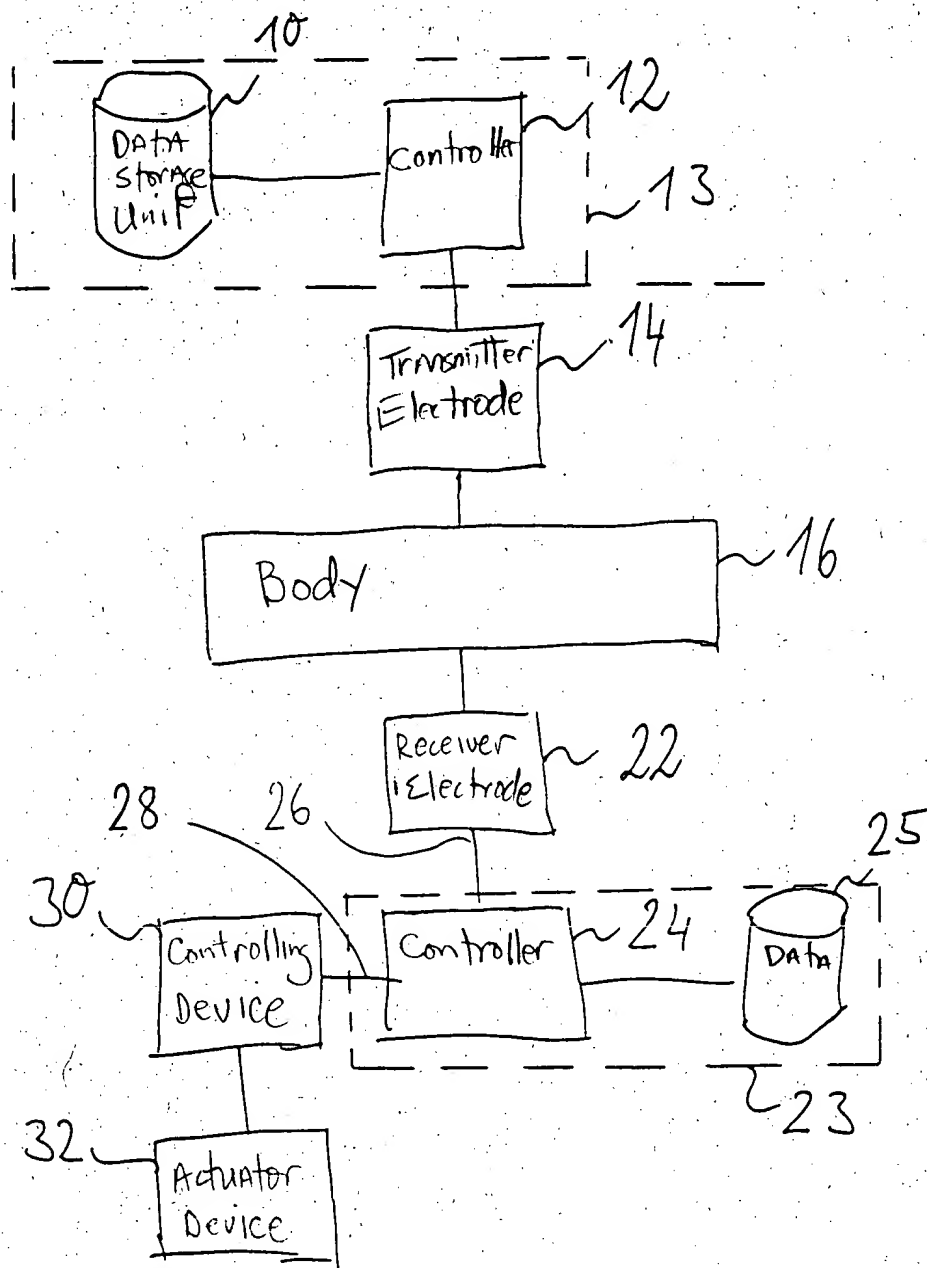 10
DATA
Storage
Unit
Controller
12
13
Transmitter
Electrode
14
Body
16
Receiver
Electrode
22
28
26
25
30
Controlling
Device
Controller
24
DATA
23
32
Actuator
Device